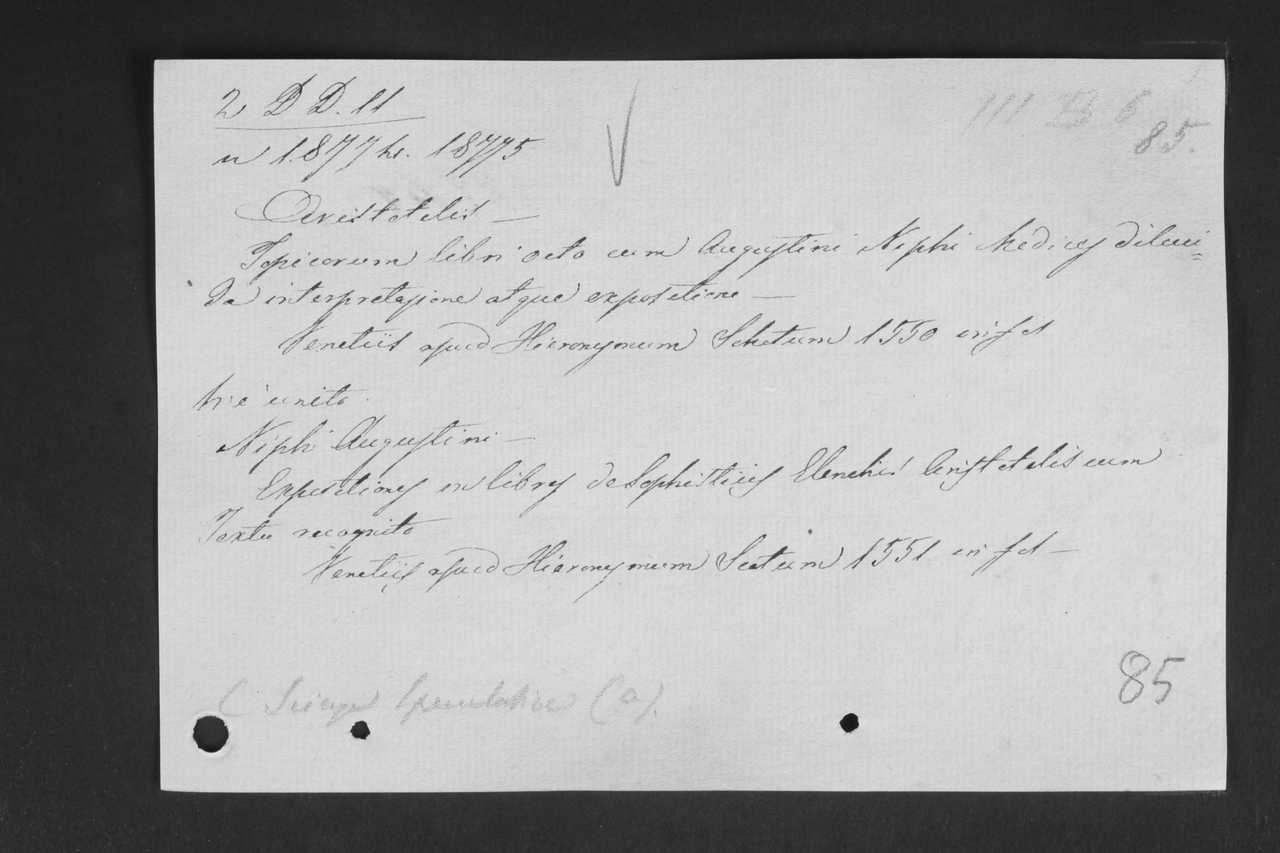 2 D D. 11
III B 6
85.
n 1877 hr. 18775
Aristotelis —
Topicorum libri octo cum Augustini Niphi Medicis diluci=
da interpretazione atque expositione —
Venetiis apud Hieronymum Schotum 1550 in fol
Vi è unito
Niphi Augustini —
Expositiones in libros de Sophisticis Elenchis Aristotelis cum
Textu recognito
Venetiis apud Hieronymum Scotum 1551 in fol —
85
Scienze Speculative (a).